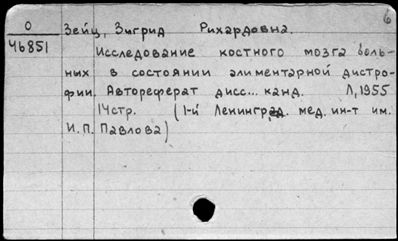 6
О Зейц, Зигрид Рихардовна.
46851
Исследование костного мозга боль-
ных в состоянии алиментарной дистро-
фии. Автореферат дисс... канд. Л, 1955
14стр. (1-й Ленинград. мед. ин-т им.
И.П. Павлова)